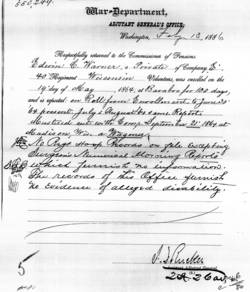 350,249.
War-Department,
ADJUTANT GENERAL'S OFFICE,
Washington, July 13, 1886
Respectfully returned to the Commissioner of Pensions.
Edwin C. Warner, a Private of Company E,
40 Regiment Wisconsin Volunteers, was enrolled on the
19 day of May 1864, at Baraboo for 100 days,
and is reported: on Roll from Enrollment to June
64 present, July & August 64 same Report
Mustered out with the Comp. September 21 1864 at
Madison Wis. a Wagoner
No Regt's Records on file excepting
Surgeon's Numerical Morning Reports
which furnish no information.
The records of this Office furnish
no evidence of alleged disability.
5
2d Cav